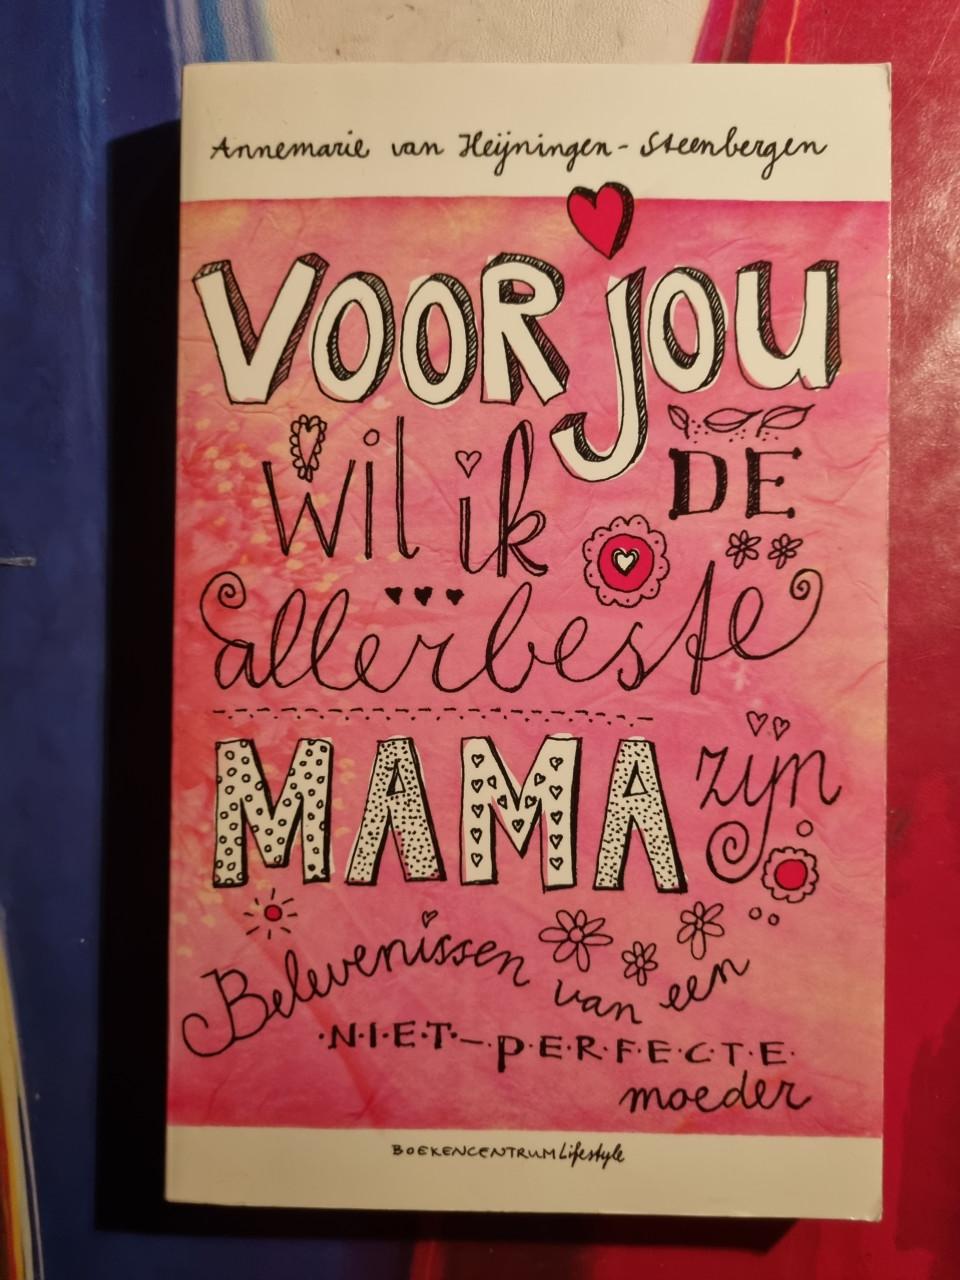 Annemarie van Heijningen-Steenbergen
VOOR JOU
wil ik DE
allerbeste
MAMA zijn
Belevenissen van een
·N·I·E·T·–·P·E·R·F·E·C·T·E·
moeder
BOEKENCENTRUM Lifestyle